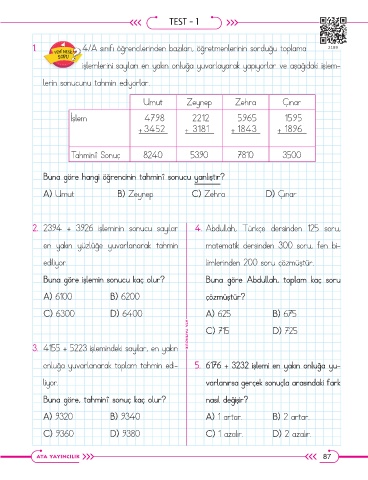 TEST - 1
2189
1. YENİ NESİL SORU 4/A sınıfı öğrencilerinden bazıları, öğretmenlerinin sorduğu toplama
işlemlerini sayıları en yakın onluğa yuvarlayarak yapıyorlar ve aşağıdaki işlem-
lerin sonucunu tahmin ediyorlar.
Umut Zeynep Zehra Çınar
İşlem 4798 2212 5.965 1595
+ 3452 + 3181 + 1843 + 1896
Tahminî Sonuç 8240 5390 7810 3500
Buna göre hangi öğrencinin tahminî sonucu yanlıştır?
A) Umut B) Zeynep C) Zehra D) Çınar
2. 2394 + 3926 işleminin sonucu sayılar
en yakın yüzlüğe yuvarlanarak tahmin
ediliyor.
Buna göre işlemin sonucu kaç olur?
A) 6100 B) 6200
C) 6300 D) 6400
3. 4155 + 5223 işlemindeki sayılar, en yakın
onluğa yuvarlanarak toplam tahmin edi-
liyor.
Buna göre, tahminî sonuç kaç olur?
A) 9320 B) 9340
C) 9360 D) 9380
4. Abdullah, Türkçe dersinden 125 soru,
matematik dersinden 300 soru, fen bi-
limlerinden 200 soru çözmüştür.
Buna göre Abdullah, toplam kaç soru
çözmüştür?
A) 625 B) 675
C) 715 D) 725
5. 6176 + 3232 işlemi en yakın onluğa yu-
varlanırsa gerçek sonuçla arasındaki fark
nasıl değişir?
A) 1 artar. B) 2 artar.
C) 1 azalır. D) 2 azalır.
ATA YAYINCILIK
87